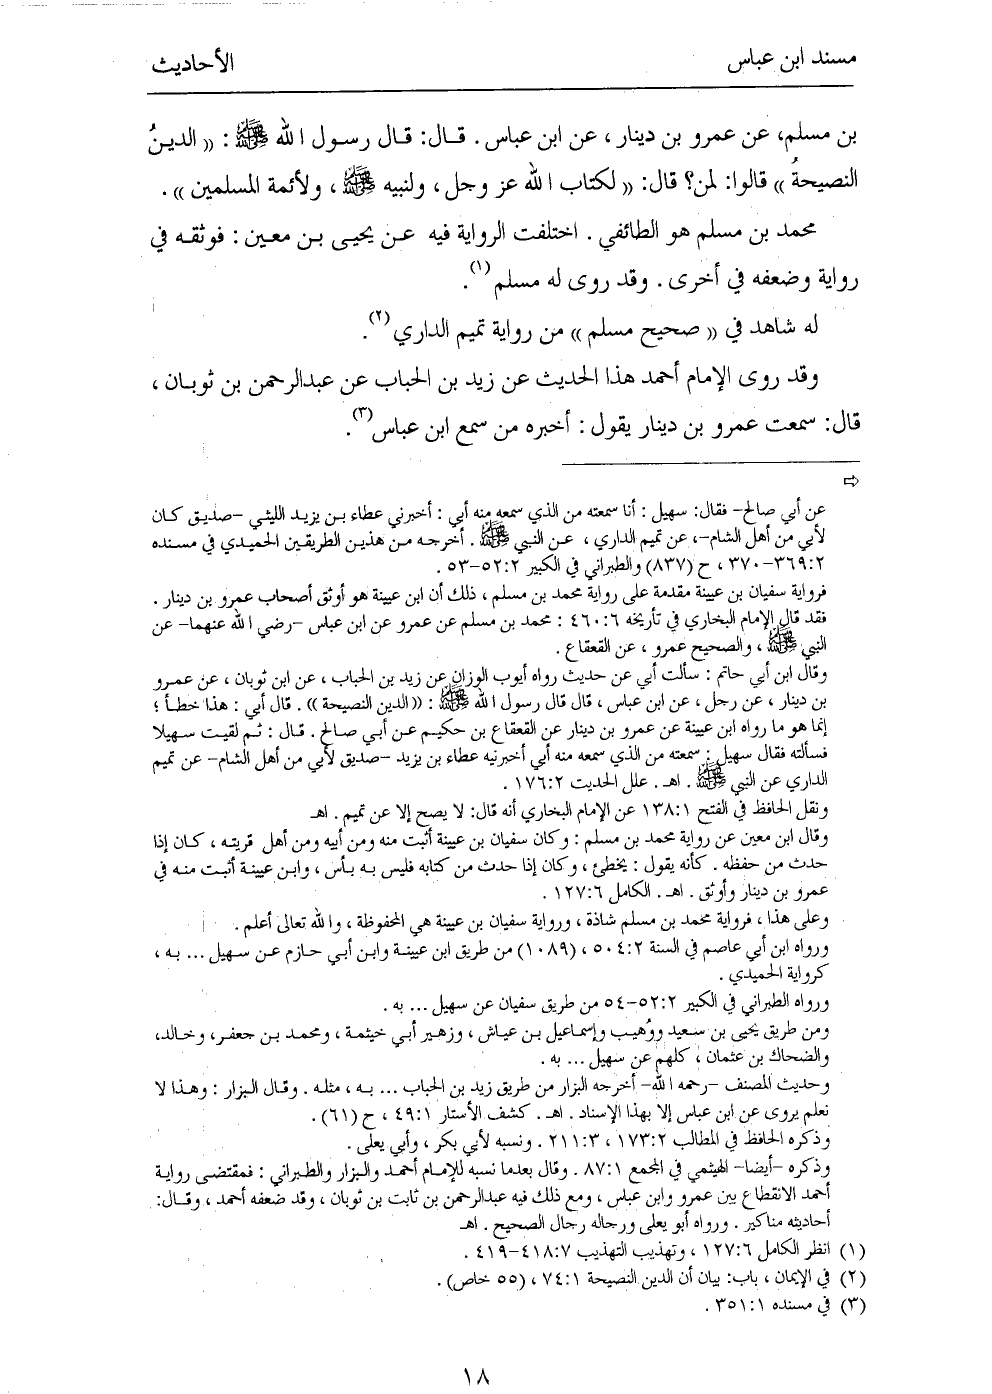 مسند ابن عباس
الأحاديث
بن مسلم، عن عمرو بن دينار ، عن ابن عباس . قـال: قـال رسـول الله ﷺ : « الدينُ
النصيحةُ » قالوا: لمن؟ قال: « لكتاب الله عز وجل ، ولنبيه ﷺ ، ولأئمة المسلمين » .
محمد بن مسلم هو الطائفي . اختلفت الرواية فيه عـن يحيـى بـن معـين : فوثقـه في
رواية وضعفه في أخرى . وقد روى له مسلم (١).
له شاهد في « صحيح مسلم » من رواية تميم الداري (٢) .
وقد روى الإمام أحمد هذا الحديث عن زيد بن الحباب عن عبدالرحمن بن ثوبـان ،
قال: سمعت عمرو بن دينار يقول : أخبره من سمع ابن عباس (٣).
⇨
عن أبي صالح- فقال: سهيل : أنا سمعته من الذي سمعه منه أبي : أخبرني عطاء بـن يزيـد الليثي -صديـق كـان
لأبي من أهل الشام-، عن تميم الداري ، عـن النبي ﷺ . أخرجـه مـن هذيـن الطريقـين الحميـدي في مسـنده
٣٦٩:٢-٣٧٠ ، ح (٨٣٧) والطبراني في الكبير ٥٢:٢-٥٣ .
فرواية سفيان بن عيينة مقدمة على رواية محمد بن مسلم ، ذلك أن ابن عيينة هو أوثق أصحاب عمرو بن دينار .
فقد قال الإمام البخاري في تأريخه ٤٦٠:٦ : محمـد بن مسلم عن عمرو عن ابن عباس -رضي الله عنهمـا- عن
النبي ﷺ ، والصحيح عمرو ، عن القعقاع .
وقال ابن أبي حاتم : سألت أبي عن حديث رواه أيوب الوزان عن زيد بن الحباب ، عن ابن ثوبان ، عن عمـرو
بن دينار ، عن رجل ، عن ابن عباس ، قال قال رسول الله ﷺ : « الدين النصيحة » . قال أبي : هـذا خطـأ ؛
إنما هو ما رواه ابن عيينة عن عمرو بن دينار عن القعقاع بن حكيـم عـن أبي صـالح . قـال : ثـم لقيـت سـهيلا
فسألته فقال سهيل : سمعته من الذي سمعه منه أبي أخبرنيه عطاء بن يزيد -صديق لأبي من أهل الشام- عن تميم
الداري عن النبي ﷺ . اهـ . علل الحديث ١٧٦:٢ .
ونقل الحافظ في الفتح ١٣٨:١ عن الإمام البخاري أنه قال: لا يصح إلا عن تميم . اهـ
وقال ابن معين عن رواية محمد بن مسلم : وكان سفيان بن عيينة أثبت منه ومن أبيه ومن أهل قريتـه ، كـان إذا
حدث من حفظه . كأنه يقول : يخطئ ، وكان إذا حدث من كتابه فليس بـه بـأس ، وابـن عيينـة أثبـت منـه في
عمرو بن دينار وأوثق . اهـ . الكامل ١٢٧:٦ .
وعلى هذا ، فرواية محمد بن مسلم شاذة ، ورواية سفيان بن عيينة هي المحفوظة ، والله تعالى أعلم .
ورواه ابن أبي عاصم في السنة ٥٠٤:٢ ، (١٠٨٩) من طريق ابن عيينـة وابـن أبـي حـازم عـن سـهيل ... بـه ،
كرواية الحميدي .
ورواه الطبراني في الكبير ٥٢:٢-٥٤ من طريق سفيان عن سهيل ... به .
ومن طريق يحيى بن سعيد ووُهيب وإسماعيل بـن عياش ، وزهـير أبـي خيثمـة ، ومحمـد بـن جعفـر، وخـالد،
والضحاك بن عثمان ، كلهم عن سهيل ... به .
وحديث المصنف -رحمه الله- أخرجه البزار من طريق زيد بن الحباب ... بـه ، مثلـه . وقـال البـزار : وهـذا لا
نعلم يروى عن ابن عباس إلا بهذا الإسناد . اهـ . كشف الأستار ٤٩:١ ، ح (٦١) .
وذكره الحافظ في المطالب ١٧٣:٢ ، ٢١١:٣ . ونسبه لأبي بكر ، وأبي يعلى .
وذكره -أيضا- الهيثمي في المجمع ٨٧:١ . وقال بعدما نسبه للإمام أحمـد والبـزار والطبراني : فمقتضـى روايـة
أحمد الانقطاع بين عمرو وابن عباس ، ومع ذلك فيه عبدالرحمن بن ثابت بن ثوبان ، وقد ضعفه أحمد ، وقـال:
أحاديثه مناكير . ورواه أبو يعلى ورجاله رجال الصحيح . اهـ
(١) انظر الكامل ١٢٧:٦ ، وتهذيب التهذيب ٤١٨:٧-٤١٩ .
(٢) في الإيمان ، باب: بيان أن الدين النصيحة ٧٤:١ ، (٥٥ خاص) .
(٣) في مسنده ٣٥١:١ .
١٨